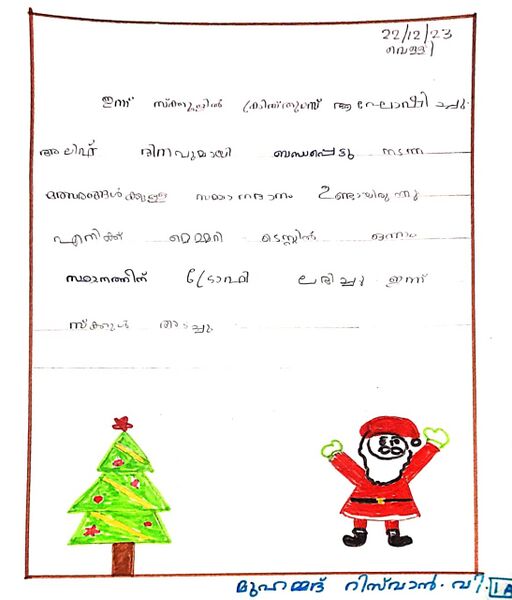 22/12/23
വെള്ളി
ഇന്ന് സ്കൂളിൽ ക്രിസ്തുമസ് ആഘോഷിച്ചു.
അലിഫ് ദിനവുമായി ബന്ധപ്പെട്ടു നടന്ന
മത്സരങ്ങൾക്കുള്ള സമ്മാനദാനം ഉണ്ടായിരുന്നു
എനിക്ക് മെമ്മറി ടെസ്റ്റിൽ ഒന്നാം
സ്ഥാനത്തിന് ട്രോഫി ലഭിച്ചു ഇന്ന്
സ്ക്കൂൾ അടച്ചു
മുഹമ്മദ് റിസ്‌വാൻ. വി. 1 A